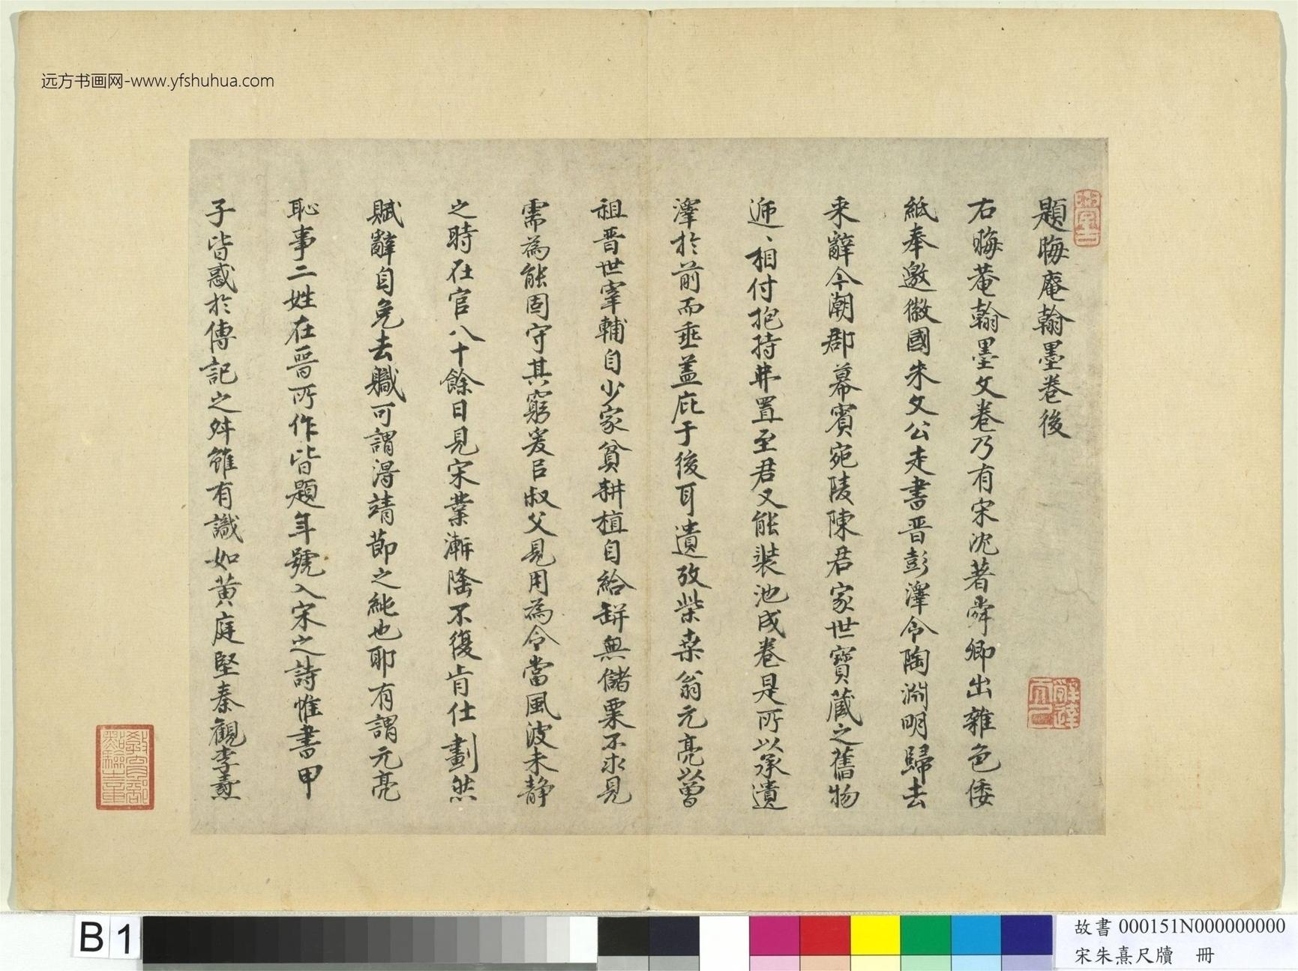 远方书画网-www.yfshuhua.com
題晦庵翰墨卷後
右晦菴翰墨文卷乃有宋沈著舜卿出雜色倭
紙奉邀徽國朱文公走書晋彭澤令陶淵明歸去
来辭今潮郡幕賓宛陵陳君家世寶藏之舊物
相付抱持置至君又能裝池成卷是所以承遺
澤於前而垂蓋庇于後耳遺攷柴桒翁元亮以曽
祖晋世宰輔自少家貧耕植自給缾無儲粟不求見
需為能固守其窮爰㠯叔父見用為令當風波未静
之時在官八十餘日見宋業漸隆不復肯仕劃然
賦辭自免去軄可謂得靖節之純也耶有謂元亮
恥事二姓在晋所作皆題年號入宋之詩惟書甲
子皆惑於傳記之舛雖有識如黄庭堅秦觀李燾
B1
故書 000151N000000000
宋朱熹尺牘 冊